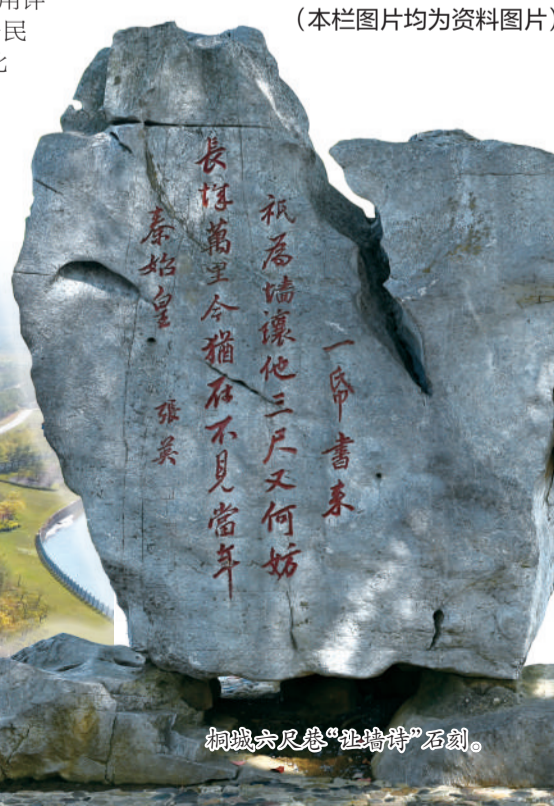 （本栏图片均为资料图片）
民
一帋書来
祇為墙讓他三尺又何妨
長城萬里今猶在不見當年
秦始皇 張英
桐城六尺巷“让墙诗”石刻。